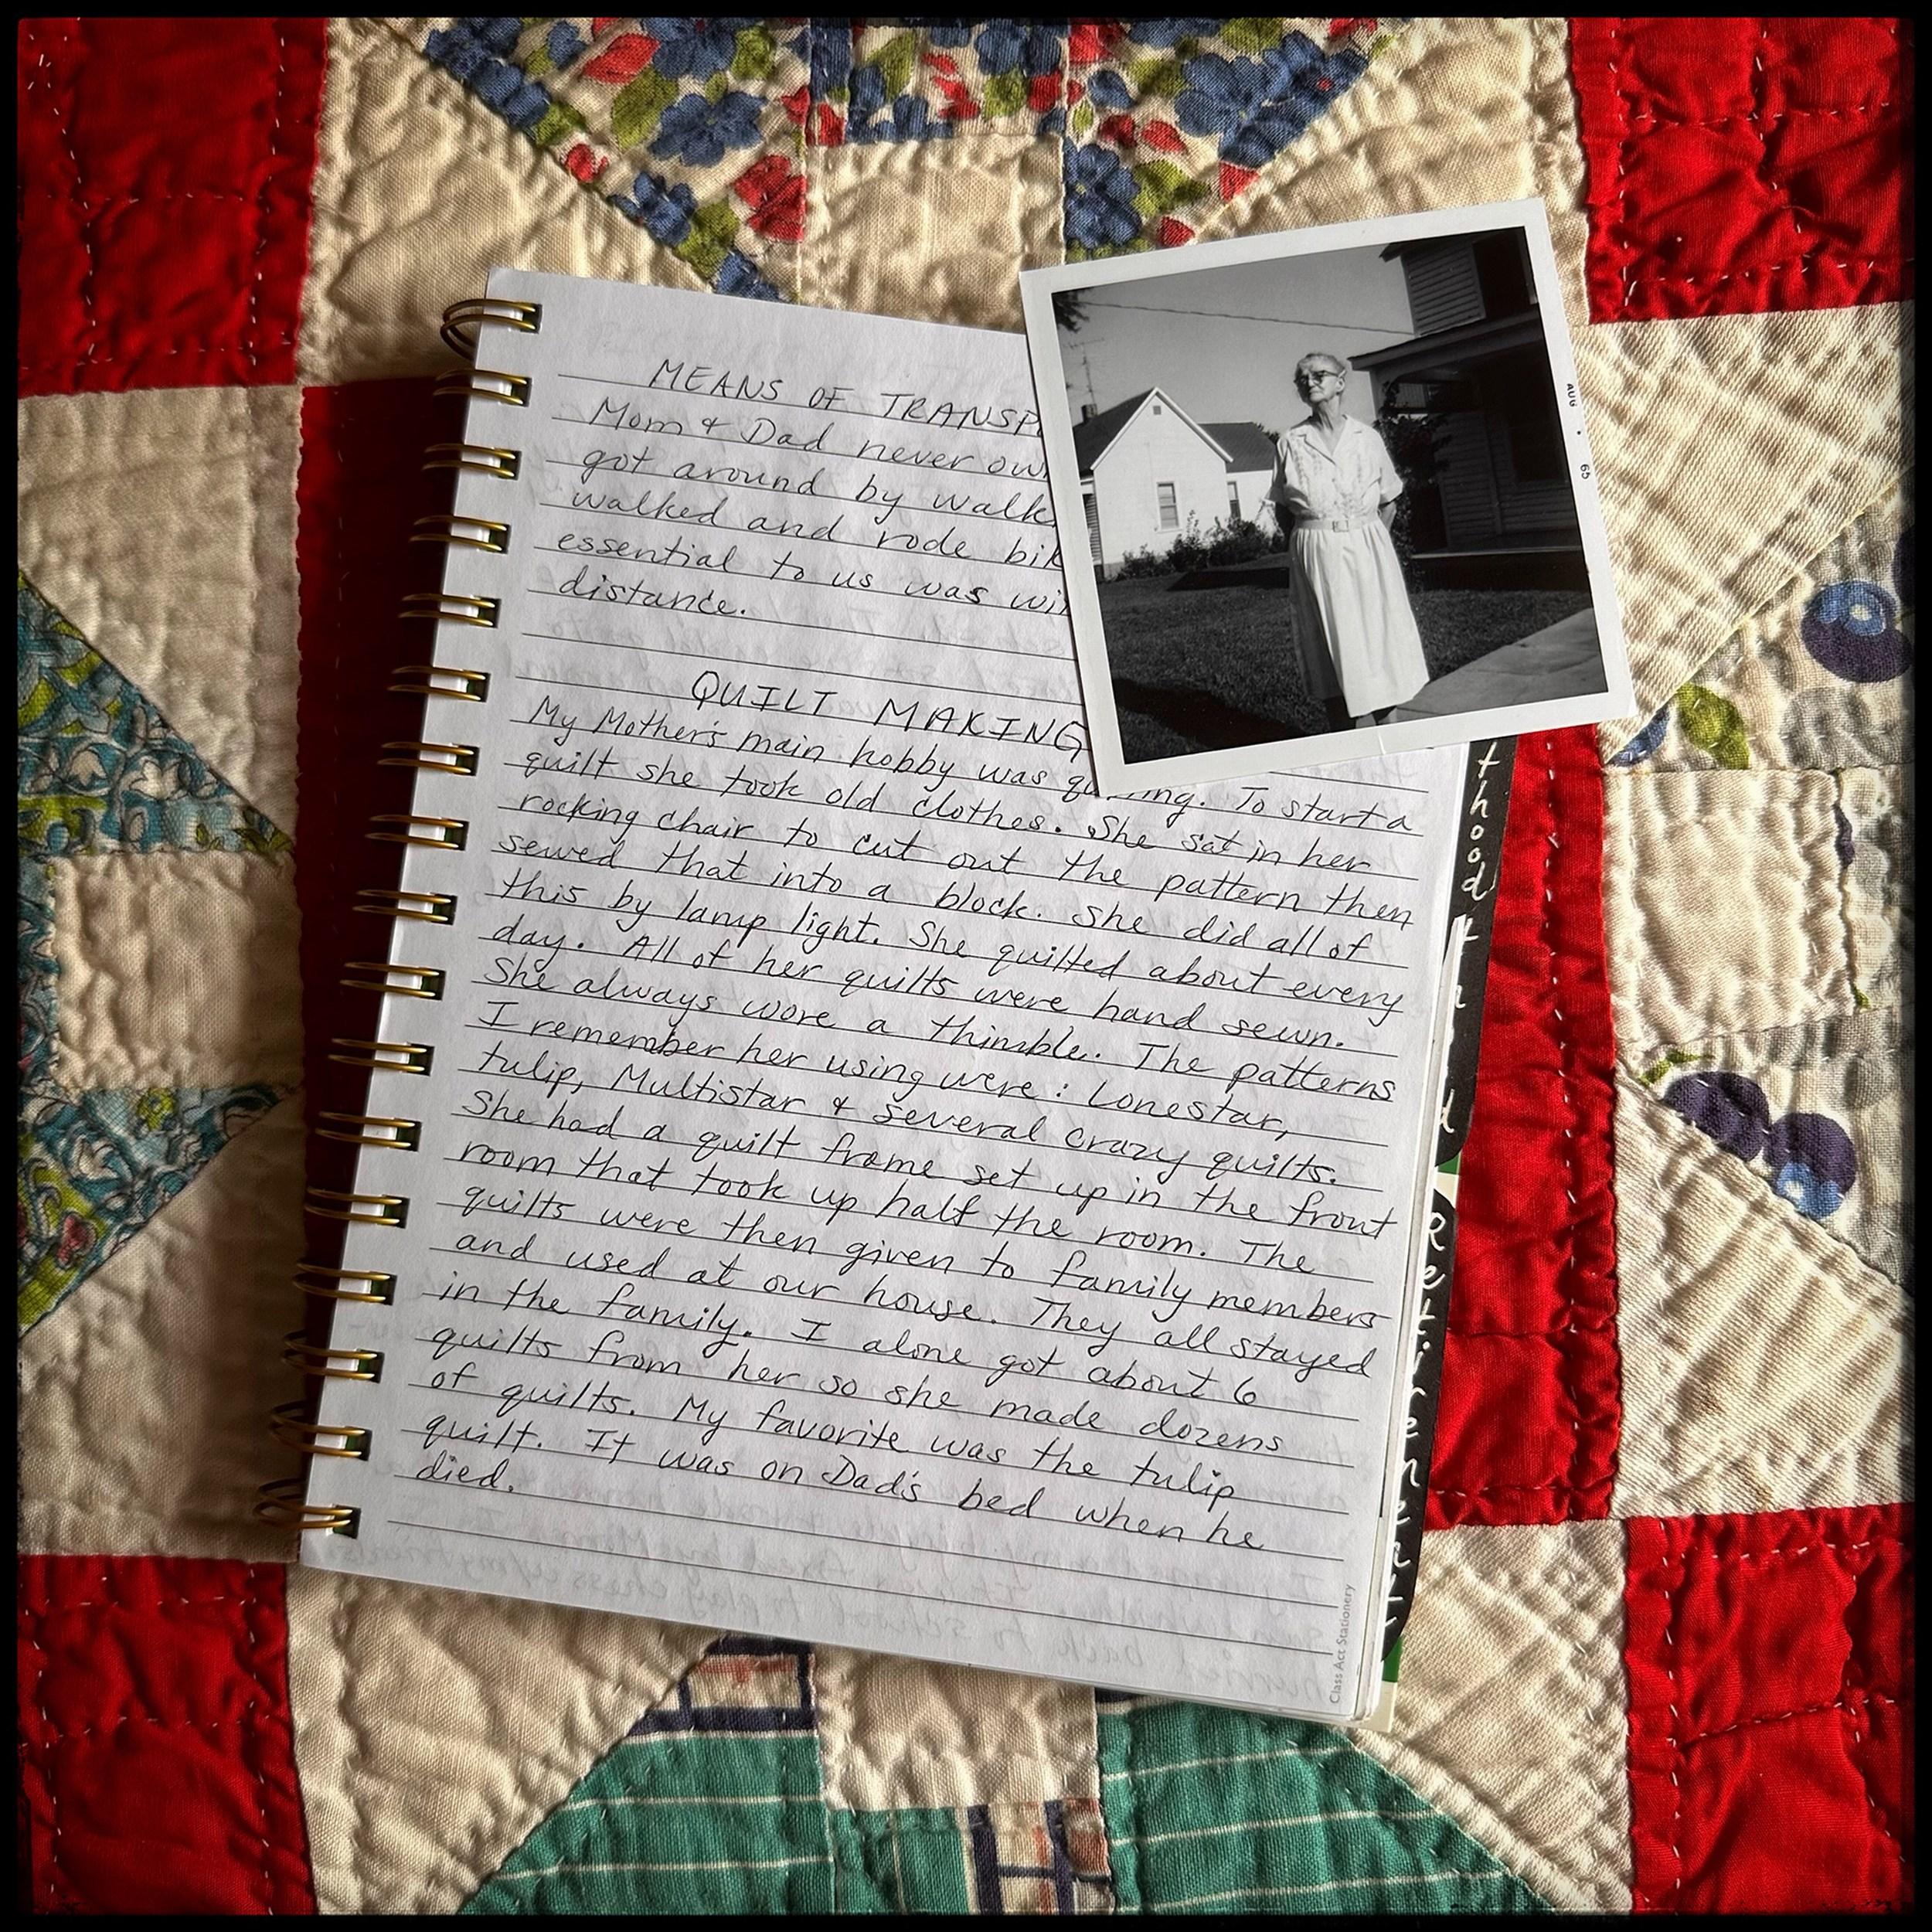 MEANS OF TRANSP
Mom & Dad never ow
got around by walk
walked and rode bik
essential to us was wi
distance.
QUILT MAKING
My Mother's main hobby was To start a
quilt she took old clothes. She sat in her
rocking chair to cut out the pattern then
sewed that into a block. She did all of
this by lamp light. She quilted about every
day. All of her quilts were hand sewn.
She always wore a thimble. The patterns
I remember her using were: Lonestar,
tulip, Multistar & several crazy quilts.
She had a quilt frame set up in the front
room that took up half the room. The
quilts were then given to family members
and used at our house. They all stayed
in the family. I alone got about 6
quilts from her so she made dozens
of quilts. My favorite was the tulip
quilt. It was on Dad's bed when he
died.
Class Act Stationery
AUG • 65
thood
Retirement